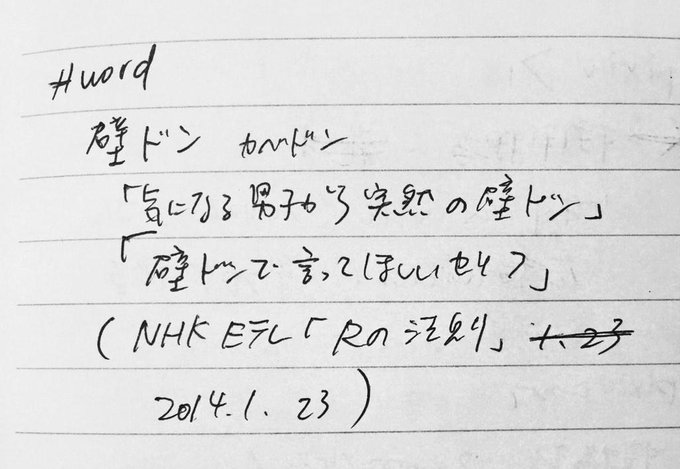 #word
壁ドン カベドン
「気になる男子から突然の壁ドン」
「壁ドンで言ってほしいセリフ」
(NHK Eテレ「Rの法則」 1.23
2014.1.23)